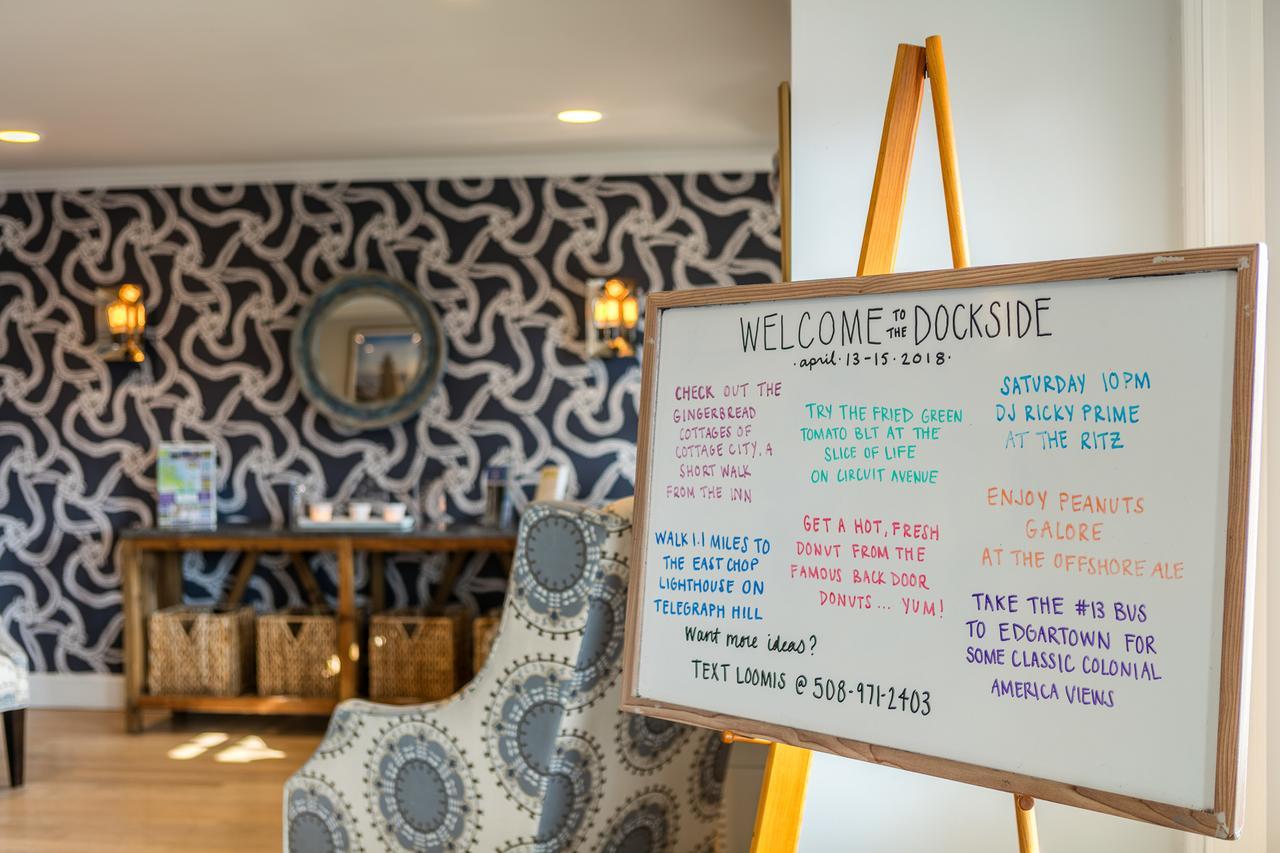 WELCOME TO THE DOCKSIDE
·april·13-15·2018·
CHECK OUT THE
GINGERBREAD
COTTAGES OF
COTTAGE CITY, A
SHORT WALK
FROM THE INN
WALK 1.1 MILES TO
THE EAST CHOP
LIGHTHOUSE ON
TELEGRAPH HILL
TRY THE FRIED GREEN
TOMATO BLT AT THE
SLICE OF LIFE
ON CIRCUIT AVENUE
GET A HOT, FRESH
DONUT FROM THE
FAMOUS BACK DOOR
DONUTS... YUM!
SATURDAY 10PM
DJ RICKY PRIME
AT THE RITZ
ENJOY PEANUTS
GALORE
AT THE OFFSHORE ALE
TAKE THE #13 BUS
TO EDGARTOWN FOR
SOME CLASSIC COLONIAL
AMERICA VIEWS
Want more ideas?
TEXT LOOMIS @ 508-971-2403